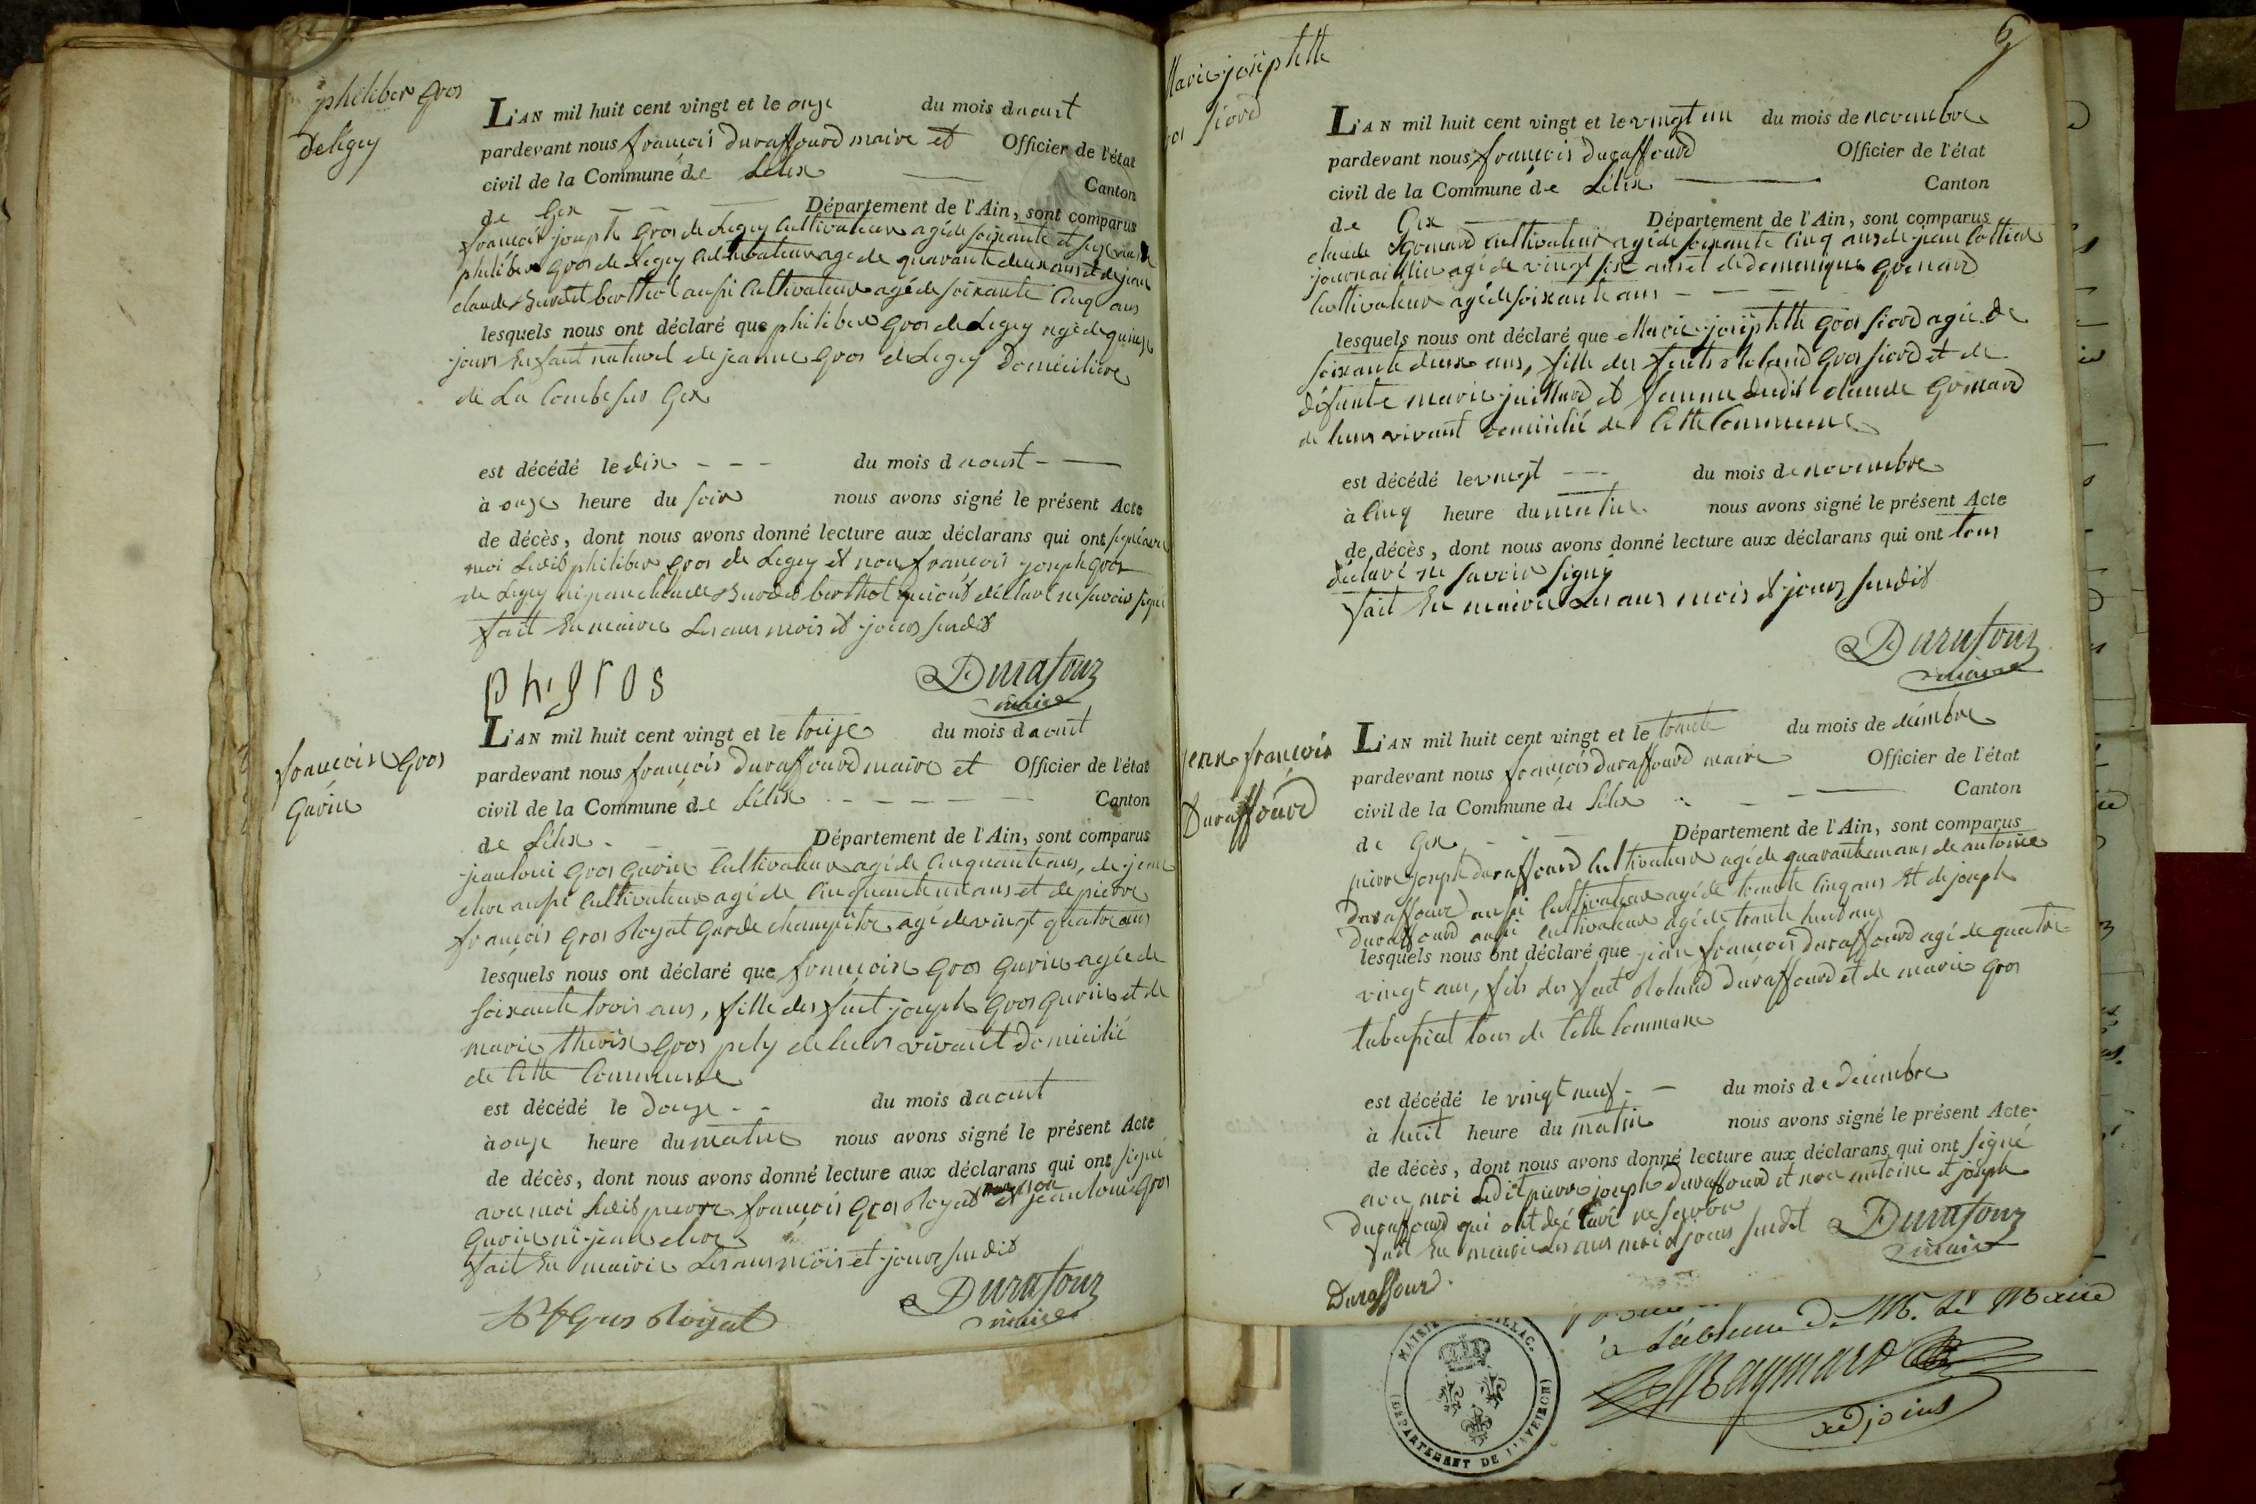 philiber Gros
deligey
L'AN mil huit cent vingt et le onze du mois daoust
pardevant nous francois Duraffourd maire et Officier de l'état
civil de la Commune de Lélex Canton
de Gex Département de l'Ain, sont comparus
francois joseph Gros de Legey Cultivateur agé de soixante et seze ans de
philiber Gros de Legey Cultivateur age de quarante deux ans et de jean
claude Burdet berthot aussi Cultivateur agé de soixante Cinq ans
lesquels nous ont déclaré que philiber Gros de Legey agé de quinze
jours Enfant naturel de jeanne Gros de Legey Domiciliere
de La Combe sur Gex
est décédé le dix du mois daoust
à onze heure du soir nous avons signé le présent Acte
de décès, dont nous avons donné lecture aux déclarans qui ont signé avec
moi Ledit philiber Gros de Legey et non francois joseph Gros
de Legey ni jean claude Burdet berthot qui ont déclaré ne savoir signé
fait En mairie Les ans mois et jours susdit
phi gros
Durafour
maire
francoise Gros
Gurin
L'AN mil huit cent vingt et le treize du mois daoust
pardevant nous francois Duraffourd maire et Officier de l'état
civil de la Commune de Lélex Canton
de Lélex Département de l'Ain, sont comparus
jean loui Gros Gurin Cultivateur agé de Cinquante ans, de jean
aussi Cultivateur agé de Cinquante un ans et de pierre
francois Gros Royat Garde champêtre agé de vingt quatre ans
lesquels nous ont déclaré que francoise Gros Gurin agée de
soixante trois ans, fille des fut joseph Gros Gurin et de
marie therèse Gros pely de leurs vivant Domicilié
de Cette Commune
est décédé le Douze du mois daoust
à onze heure du matin nous avons signé le présent Acte
de décès, dont nous avons donné lecture aux déclarans qui ont signé
avec moi Ledit pierre francois Gros Royat et non jean loui Gros
Gurin ni jean
fait En mairie Les ans mois et jours susdit
Gros Royat
Durafour
maire
6
Marie josephette
Gros Sicord
L'AN mil huit cent vingt et le vingt un du mois de novembre
pardevant nous francois Duraffourd Officier de l'état
civil de la Commune de Lélex Canton
de Gex Département de l'Ain, sont comparus
claude Gromard Cultivateur agé de soixante Cinq ans de jean
journaillier agé de vingt six ans et de domenique Gromard
Cultivateur agé de soixante ans
lesquels nous ont déclaré que Marie josephette Gros Sicord agée de
soixante deux ans, fille des futs Roland Gros Sicord et de
défunte marie juillard et femme dudit claude Gromard
de leurs vivant domicilié de Cette Commune
est décédé le vingt du mois de novembre
à Cinq heure du matin nous avons signé le présent Acte
de décès, dont nous avons donné lecture aux déclarans qui ont tous
déclaré ne savoir signé
fait En mairie Les ans mois et jours susdit
Durafour
maire
jean françois
Duraffourd
L'AN mil huit cent vingt et le trente du mois de décembre
pardevant nous francois Duraffourd maire Officier de l'état
civil de la Commune de Lélex Canton
de Gex Département de l'Ain, sont comparus
pierre joseph duraffourd Cultivateur agé de quarante un ans de antoine
Duraffourd aussi Cultivateur agé de trente Cinq ans et de joseph
Duraffourd aussi Cultivateur agé de trante huit ans
lesquels nous ont déclaré que jean francois duraffourd agé de quatre-
vingt ans, fils des fut Roland duraffourd et de marie Gros
tabussiat tous de Cette Commune
est décédé le vingt neuf du mois de décembre
à huit heure du matin nous avons signé le présent Acte
de décès, dont nous avons donné lecture aux déclarans qui ont signé
avec moi Ledit pierre joseph duraffourd et non antoine et joseph
Duraffourd qui ont déclaré ne savoir
fait En mairie Les ans mois et jours susdit
Durafour
maire
Duraffour
à L'absence De M. Le Maire
Raymard
adjoint
DÉPARTEMENT DE L'AVEIRON